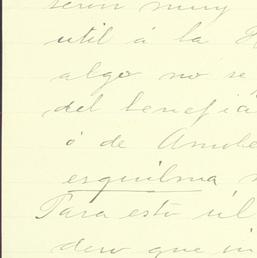 serán muy
util á la
algo no se
del benefi
ó de
esquilma
Para esto
dero que